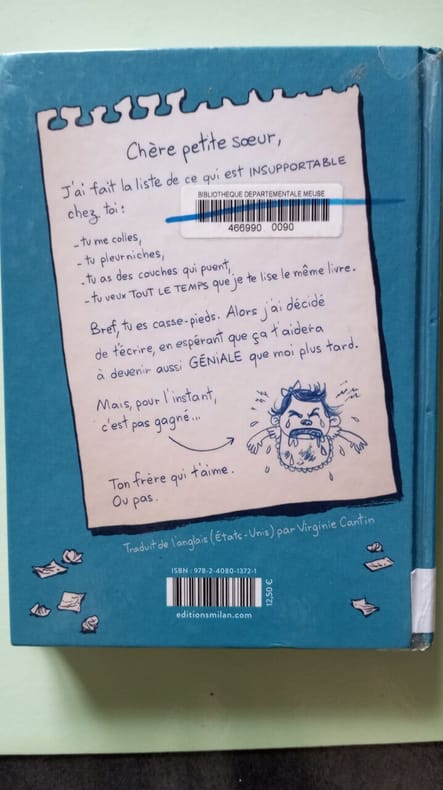 Chère petite sœur,
J'ai fait la liste de ce qui est INSUPPORTABLE
chez toi :
BIBLIOTHEQUE DEPARTEMENTALE MEUSE
466990 0090
- tu me colles,
- tu pleurniches,
- tu as des couches qui puent,
- tu veux TOUT LE TEMPS que je te lise le même livre.
Bref, tu es casse-pieds. Alors j'ai décidé
de t'écrire, en espérant que ça t'aidera
à devenir aussi GÉNIALE que moi plus tard.
Mais, pour l'instant,
c'est pas gagné...
Ton frère qui t'aime.
Ou pas.
Traduit de l'anglais (États-Unis) par Virginie Cantin
ISBN : 978-2-4080-1372-1
12,50 €
editionsmilan.com